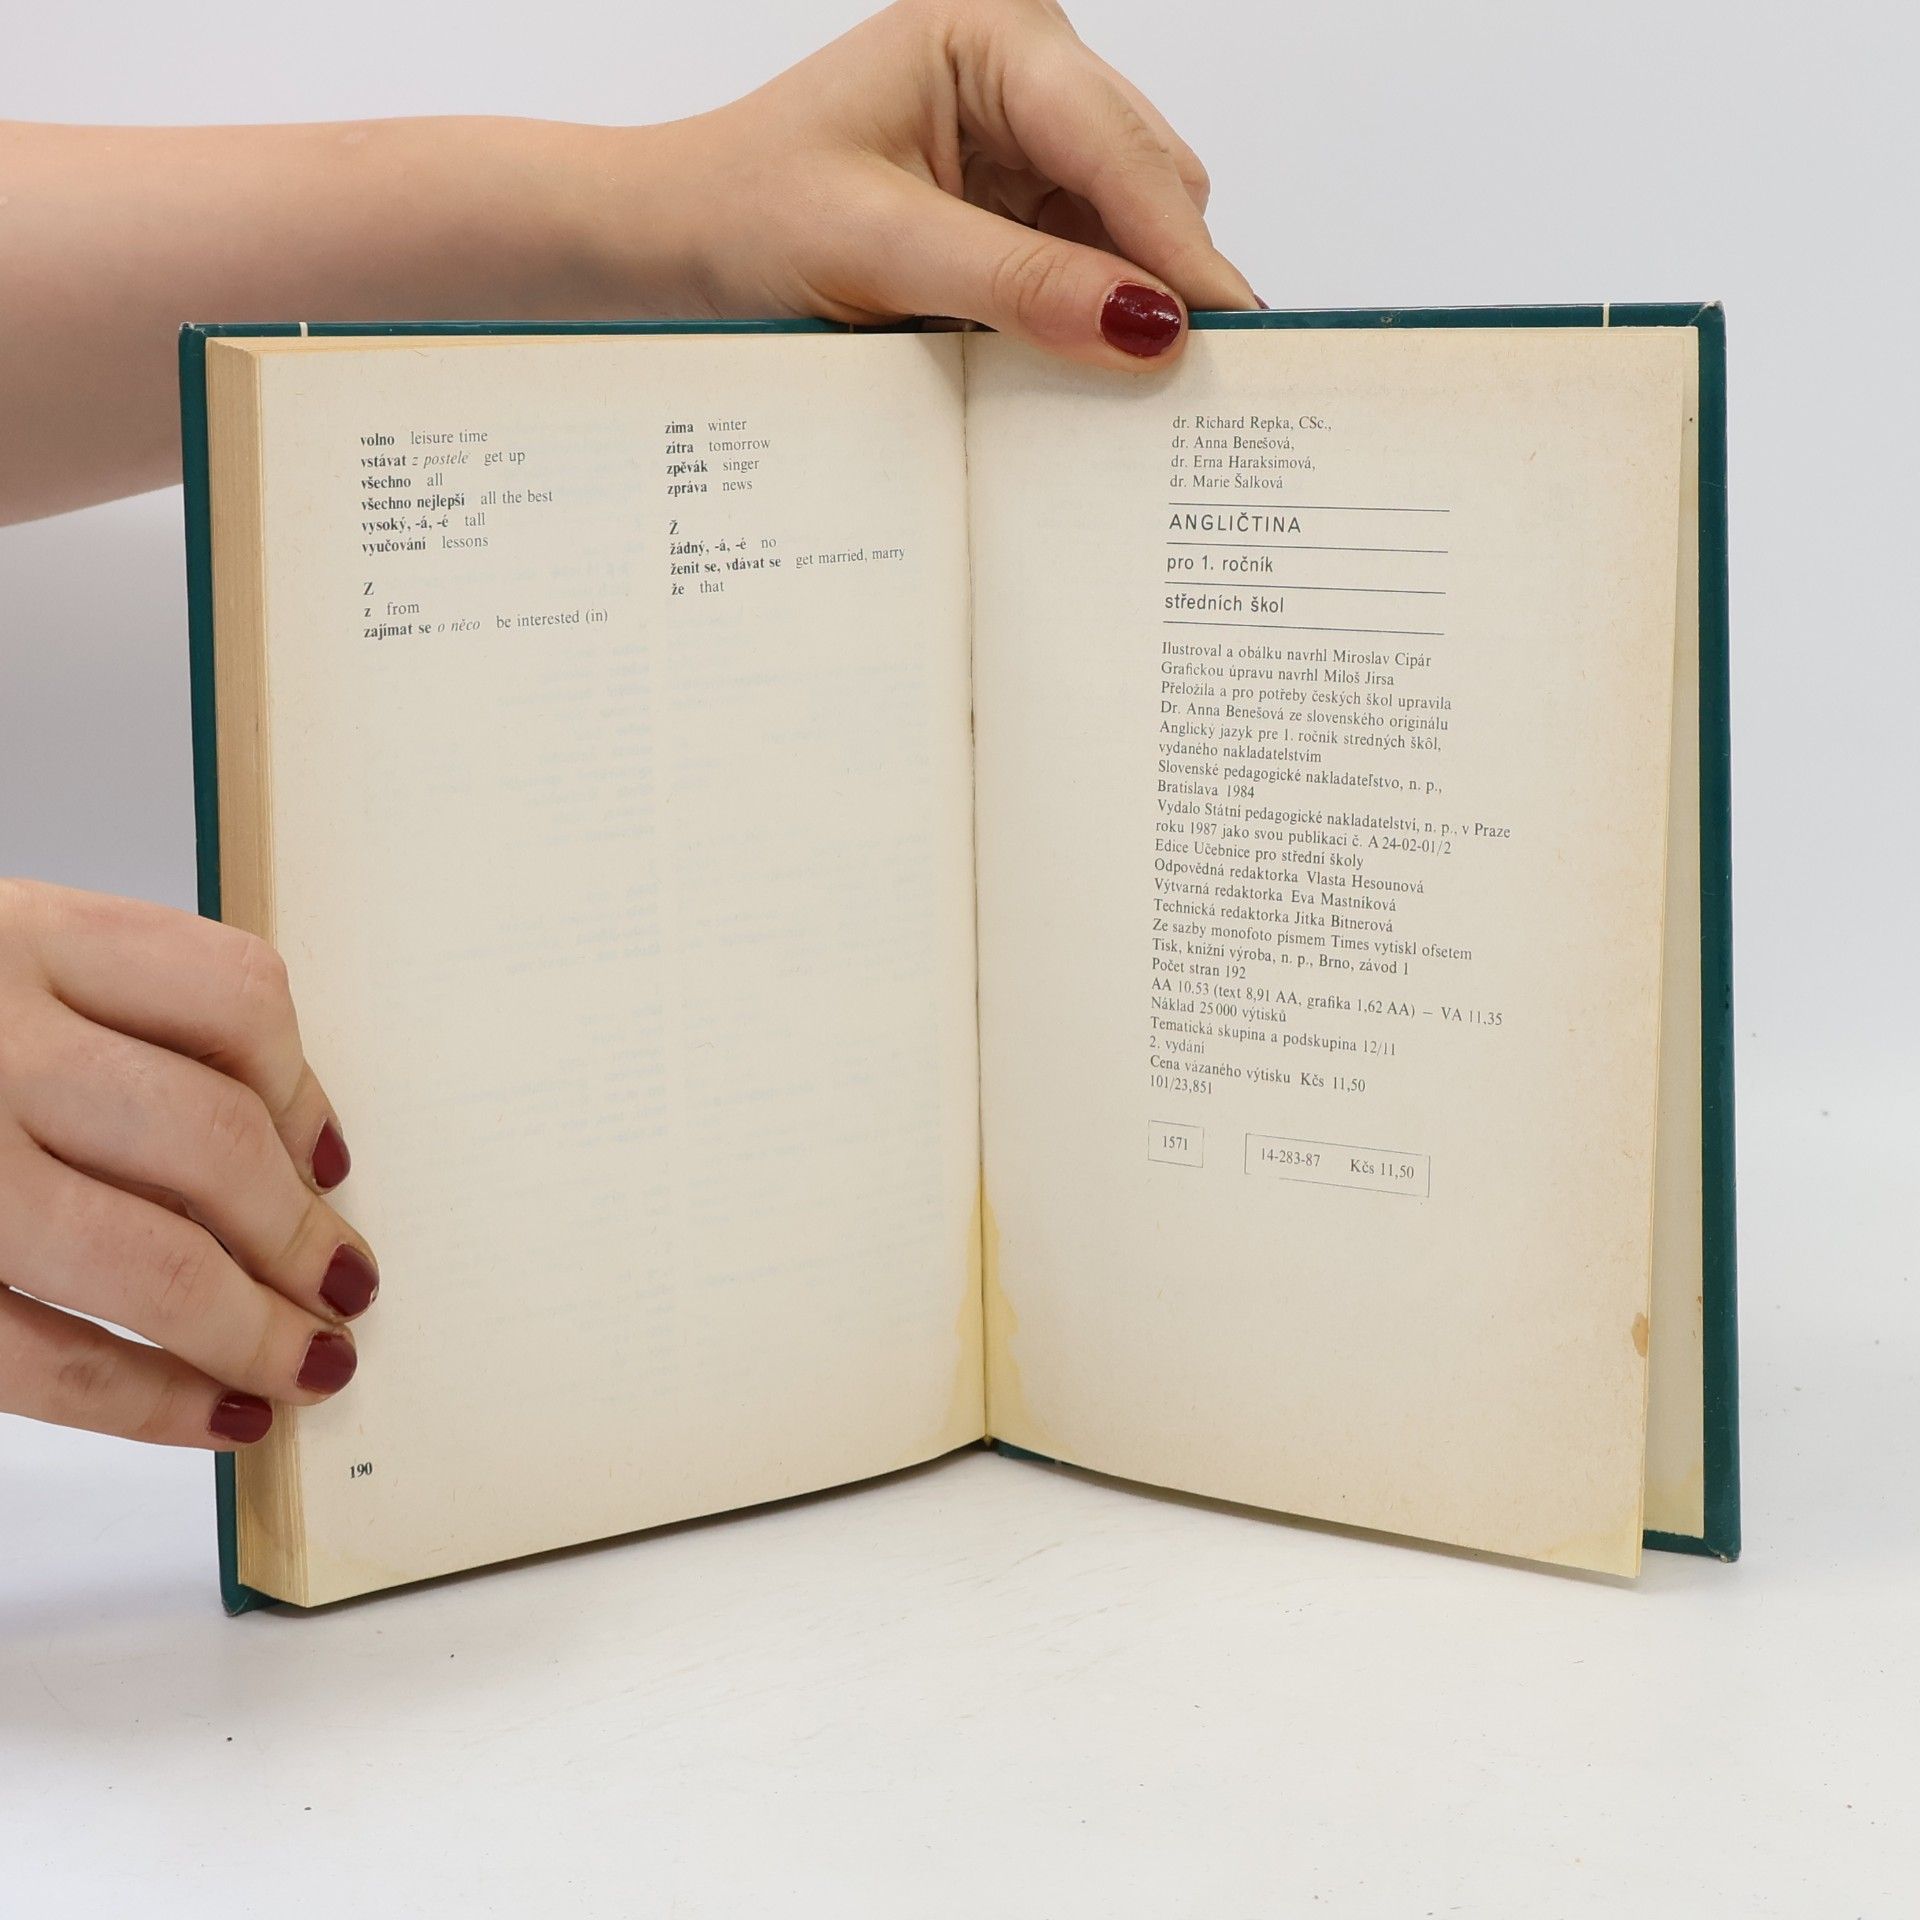 volno leisure time
vstávat z postele get up
všechno all
všechno nejlepší all the best
vysoký, -á, -é tall
vyučování lessons
Z
z from
zajímat se o něco be interested (in)
zima winter
zítra tomorrow
zpěvák singer
zpráva news
Ž
žádný, -á, -é no
ženit se, vdávat se get married, marry
že that
190
dr. Richard Repka, CSc.,
dr. Anna Benešová,
dr. Erna Haraksimová,
dr. Marie Šalková
ANGLIČTINA
pro 1. ročník
středních škol
Ilustroval a obálku navrhl Miroslav Cipár
Grafickou úpravu navrhl Miloš Jirsa
Přeložila a pro potřeby českých škol upravila
Dr. Anna Benešová ze slovenského originálu
Anglický jazyk pre 1. ročník stredných škôl,
vydaného nakladatelstvím
Slovenské pedagogické nakladateľstvo, n. p.,
Bratislava 1984
Vydalo Státní pedagogické nakladatelství, n. p., v Praze
roku 1987 jako svou publikaci č. A 24-02-01/2
Edice Učebnice pro střední školy
Odpovědná redaktorka Vlasta Hesounová
Výtvarná redaktorka Eva Mastníková
Technická redaktorka Jitka Bitnerová
Ze sazby monofoto písmem Times vytiskl ofsetem
Tisk, knižní výroba, n. p., Brno, závod 1
Počet stran 192
AA 10.53 (text 8,91 AA, grafika 1,62 AA) – VA 11,35
Náklad 25 000 výtisků
Tematická skupina a podskupina 12/11
2. vydání
Cena vázaného výtisku Kčs 11,50
101/23,851
1571
14-283-87 Kčs 11,50